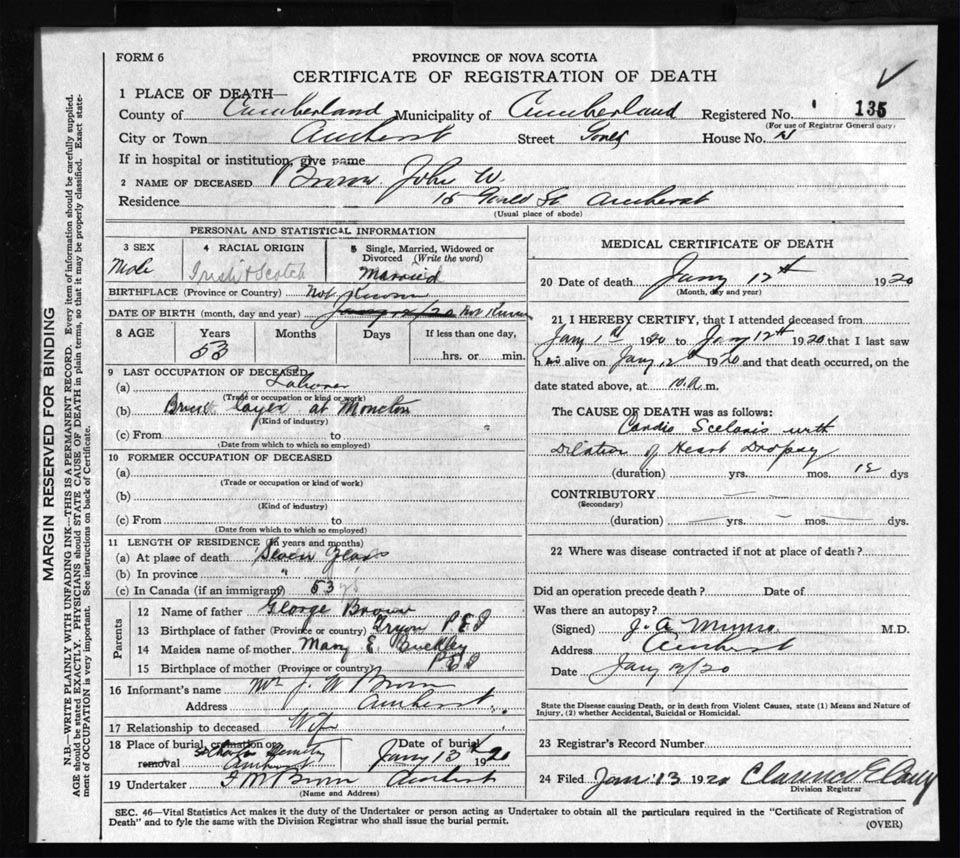 FORM 6
PROVINCE OF NOVA SCOTIA
CERTIFICATE OF REGISTRATION OF DEATH
1 PLACE OF DEATH—
County of Cumberland Municipality of Cumberland Registered No. 135
(For use of Registrar General only)
City or Town Amherst Street House No.
If in hospital or institution, give name
2 NAME OF DECEASED Brown John W.
Residence 15 St Amherst
(Usual place of abode)
PERSONAL AND STATISTICAL INFORMATION
3 SEX 4 RACIAL ORIGIN 5 Single, Married, Widowed or Divorced (Write the word)
Male Irish & Scotch Married
BIRTHPLACE (Province or Country) Not Known
DATE OF BIRTH (month, day and year) Not Known
8 AGE Years Months Days If less than one day,
53 hrs. or min.
9 LAST OCCUPATION OF DECEASED
(a) Laborer
(Trade or occupation or kind of work)
(b) Brick layer at Moncton
(Kind of industry)
(c) From to
(Date from which to which so employed)
10 FORMER OCCUPATION OF DECEASED
(a)
(Trade or occupation or kind of work)
(b)
(Kind of industry)
(c) From to
(Date from which to which so employed)
11 LENGTH OF RESIDENCE (in years and months)
(a) At place of death Seven Years
(b) In province "
(c) In Canada (if an immigrant) 53 yrs
Parents
12 Name of father George Brown
13 Birthplace of father (Province or country) Tryon P.E.I
14 Maiden name of mother Mary E. Buckley
15 Birthplace of mother (Province or country) P E I
16 Informant's name Mrs J. W Brown
Address Amherst
17 Relationship to deceased Wife
18 Place of burial, cremation or removal Cemetery Amherst Date of burial Jany 13 1920
19 Undertaker F M Brown Amherst
(Name and Address)
MEDICAL CERTIFICATE OF DEATH
20 Date of death Jany 12th 1920
(Month, day and year)
21 I HEREBY CERTIFY, that I attended deceased from
Jany 1st to Jany 12th 1920 that I last saw
h alive on Jany 12 1920 and that death occurred, on the
date stated above, at m.
The CAUSE OF DEATH was as follows:
Cardio with
Dilation of Heart Dropsy
(duration) yrs. mos. 12 dys
CONTRIBUTORY
(Secondary)
(duration) yrs. mos. dys.
22 Where was disease contracted if not at place of death?
Did an operation precede death? Date of
Was there an autopsy?
(Signed) J. A Munro M.D.
Address Amherst
Date Jany /20
State the Disease causing Death, or in death from Violent Causes, state (1) Means and Nature of
Injury, (2) whether Accidental, Suicidal or Homicidal.
23 Registrar's Record Number
24 Filed Jan 13 1920 Clarence E
Division Registrar
SEC. 46—Vital Statistics Act makes it the duty of the Undertaker or person acting as Undertaker to obtain all the particulars required in the "Certificate of Registration of
Death" and to fyle the same with the Division Registrar who shall issue the burial permit.
(OVER)
MARGIN RESERVED FOR BINDING
N.B.—WRITE PLAINLY WITH UNFADING INK—THIS IS A PERMANENT RECORD. Every item of information should be carefully supplied.
AGE should be stated EXACTLY. PHYSICIANS should STATE CAUSE OF DEATH in plain terms, so that it may be properly classified. Exact state-
ment of OCCUPATION is very important. See instructions on back of Certificate.